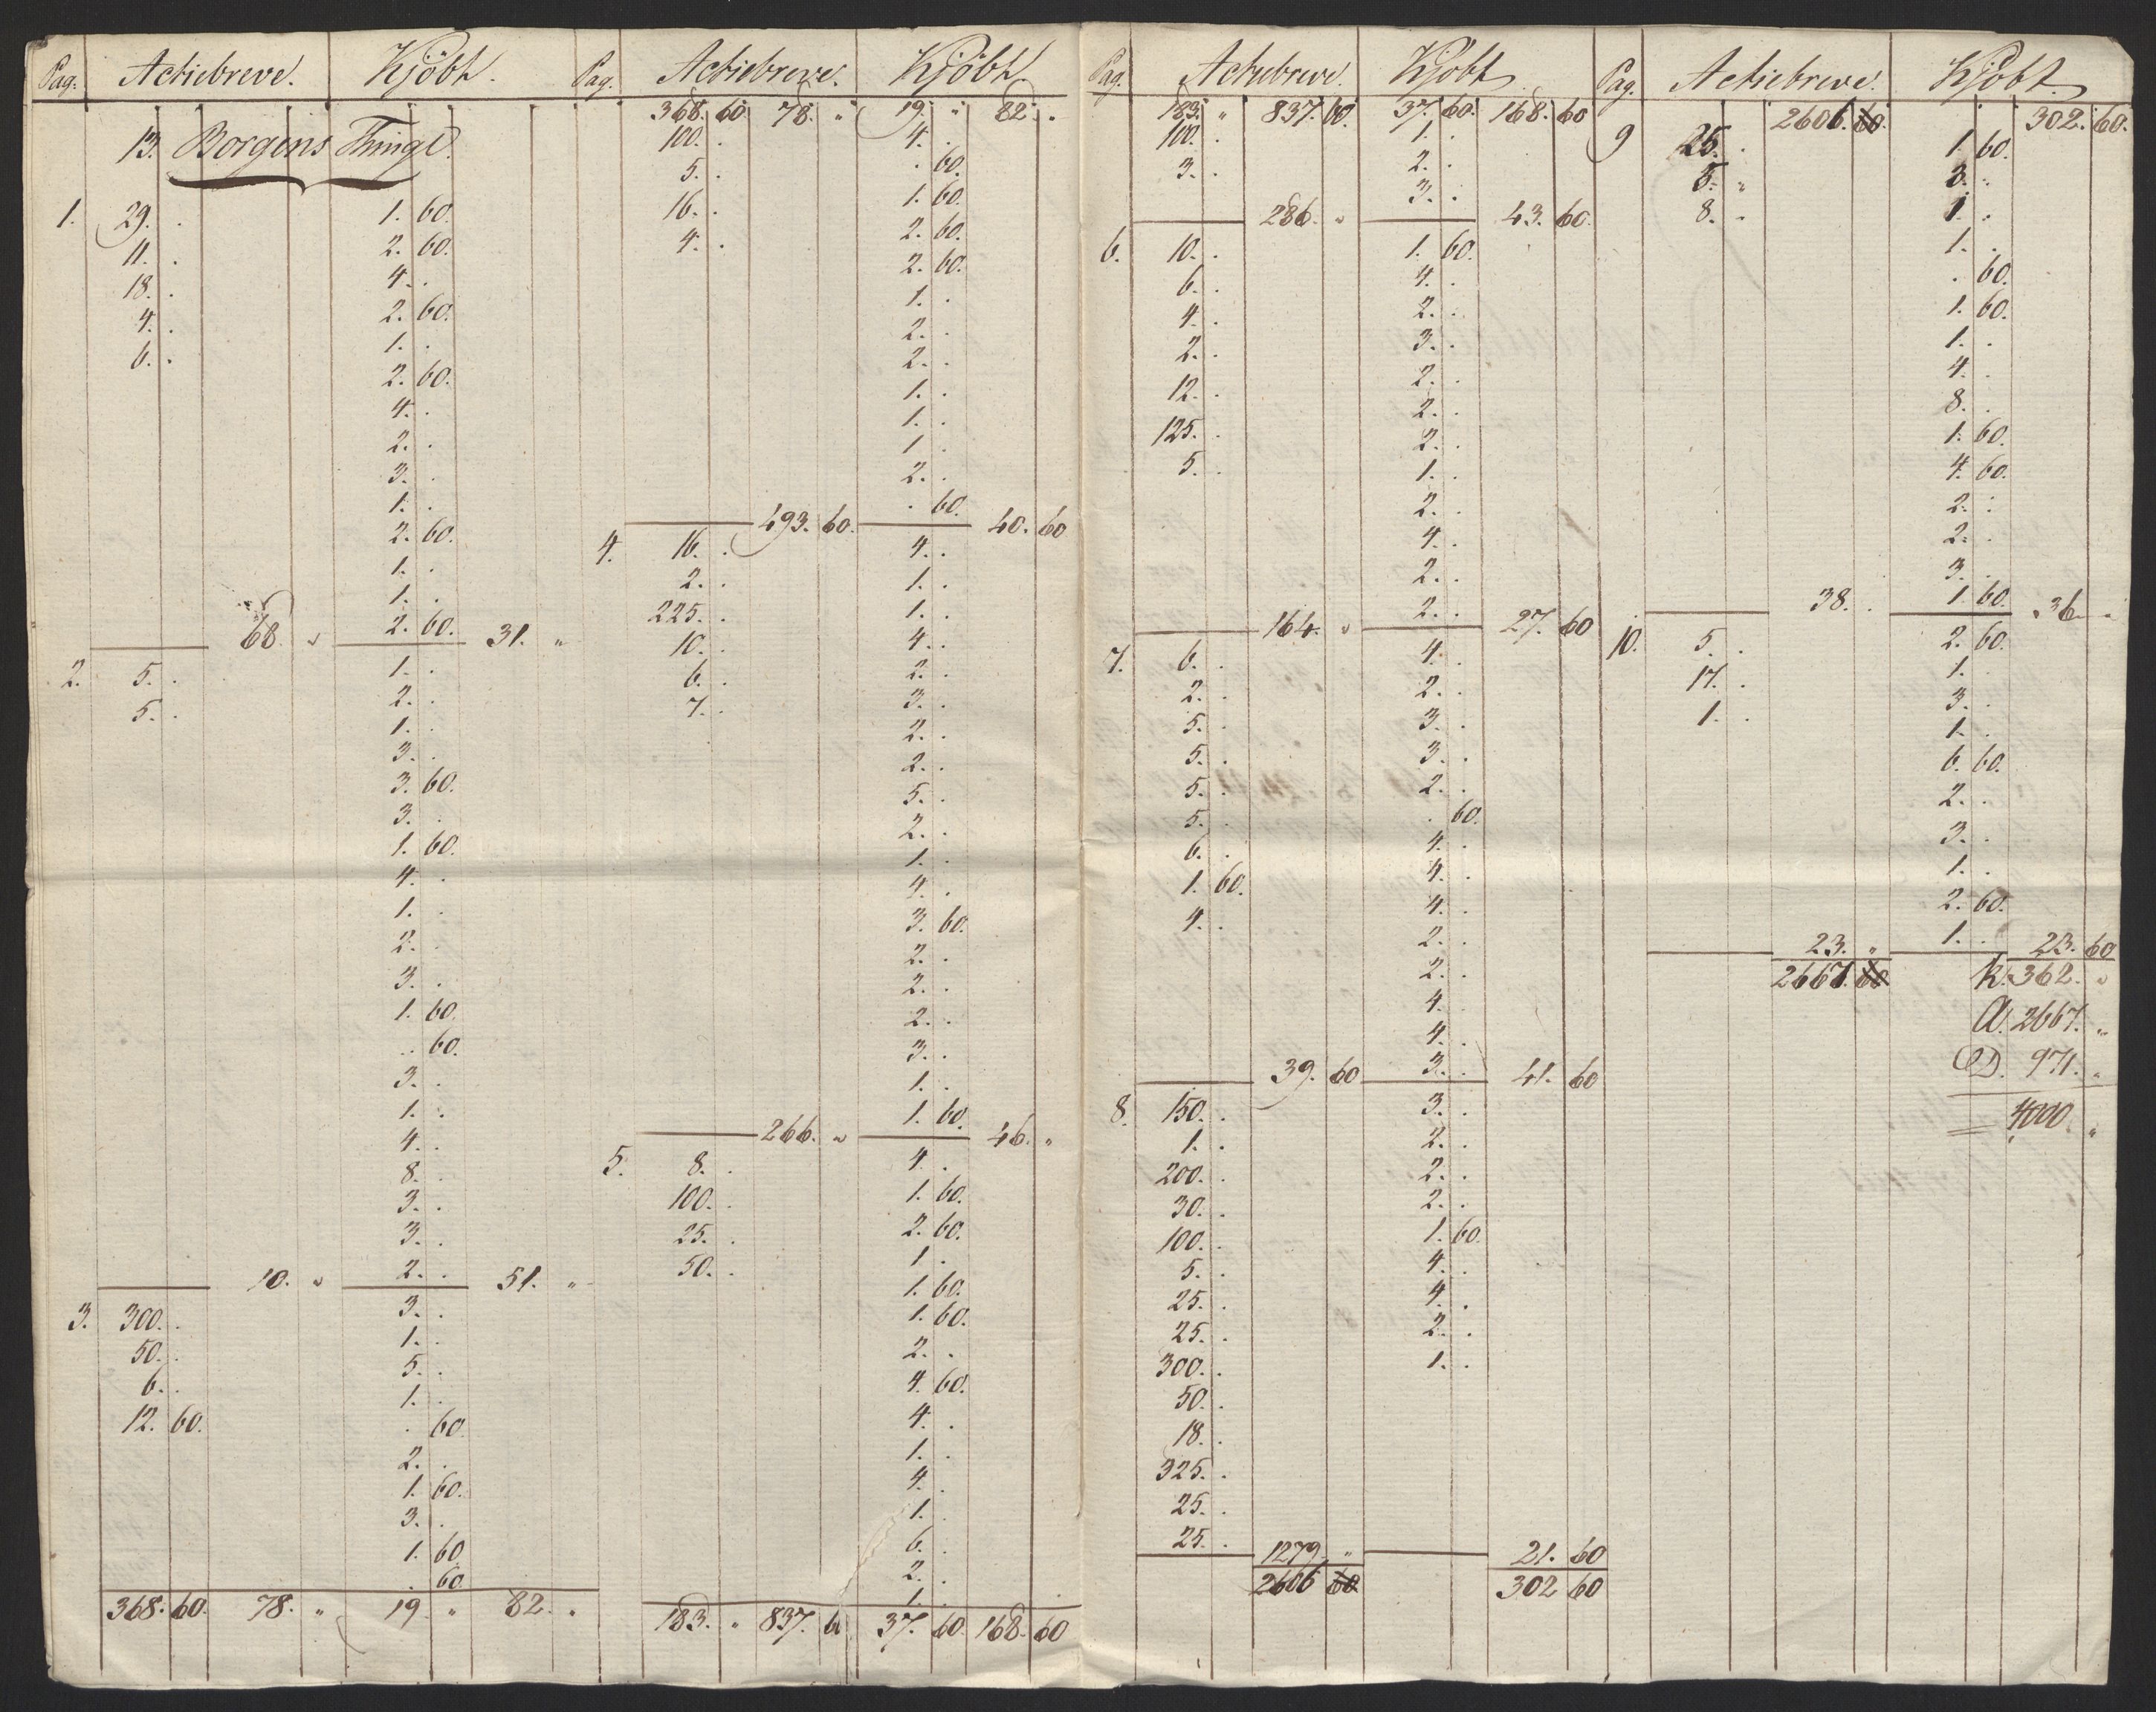 Pag. Actiebreve. Kjöbt.
13. Borgens Thingl.
1. 29. . 1. 60.
11. . 2. 60.
18. . 4. .
4. . 2. 60.
6. . 1. .
2. 60.
4. .
2. .
3. .
1. .
2. 60.
1. .
1. .
68. " 2. 60. 31. "
2. 5. . 1. .
5. . 2. .
1. .
3. .
3. 60.
3. .
1. 60.
4. .
1. .
2. .
3. .
1. 60.
. 60.
3. .
1. .
4. .
8. .
3. .
3. .
10. " 2. . 51. "
3. 300. . 3. .
50. . 1. .
6. . 5. .
12. 60. 1. .
. 60.
2. .
1. 60.
3. .
1. 60.
. 60.
368. 60. 78. " 19. " 82. "
Pag. Actiebreve. Kjöbt.
368. 60 78. " 19. " 82. .
100. . 4. .
5. . . 60.
16. . 1. 60.
4. . 2. 60.
2. 60.
1. .
2. .
2. .
1. .
1. .
1. .
2. .
493. 60. . 60. 40. 60
4. 16. . 4. .
2. . 1. .
225. . 1. .
10. . 4. .
6. . 2. .
7. . 3. .
2. .
2. .
5. .
2. .
1. .
4. .
3. 60.
2. .
2. .
2. .
3. .
1. .
266. " 1. 60. 46. "
5. 8. . 4. .
100. . 1. 60.
25. . 2. 60.
50. . 1. .
1. 60.
1. 60.
2. .
4. 60.
4. .
1. .
4. .
1. .
6. .
2. .
1. .
183. " 837. 6 37. 60. 168. 60
Pag. Actiebreve. Kjöbt
183. " 837. 60. 37. 60. 168. 60
100. . 1. .
3. . 2. .
286. " 3. . 43. 60.
6. 10. . 1. 60.
6. . 4. .
4. . 2. .
2. . 3. .
12. . 2. .
125. . 2. .
5. . 2. .
1. .
2. .
4. .
2. .
164. " 2. . 27. 60
7. 6. . 4. .
2. . 2. .
5. . 3. .
5. . 3. .
5. . 2. .
5. . . 60.
6. . 4. .
1. 60. 4. .
4. . 4. .
2. .
2. .
4. .
4. .
39. 60 3. . 41. 60
8. 150. . 3. .
1. . 2. .
200. . 2. .
30. . 2. .
100. . 1. 60.
5. . 4. .
25. . 4. .
25. . 2. .
300. . 1. .
50. .
18. .
325. .
25. .
25. .
1279. " 21. 60
2606 60 302 60
Pag. Actiebreve. Kjöbt.
2606. 60. 302. 60.
9 25. . 1. 60.
5. " 3. .
8. . 1. .
1. .
. 60.
1. 60.
1. .
4. .
8. .
1. 60.
4. 60.
2. .
2. .
3. .
38. . 1. 60. 36. "
10. 5. . 2. 60.
17. . 1. .
1. . 3. .
1. .
6. 60.
2. .
3. .
1. .
2. 60.
23. " 1. . 23. 60
2667. 60 K. 362. "
A. 2667. "
D. 971. "
4000. "